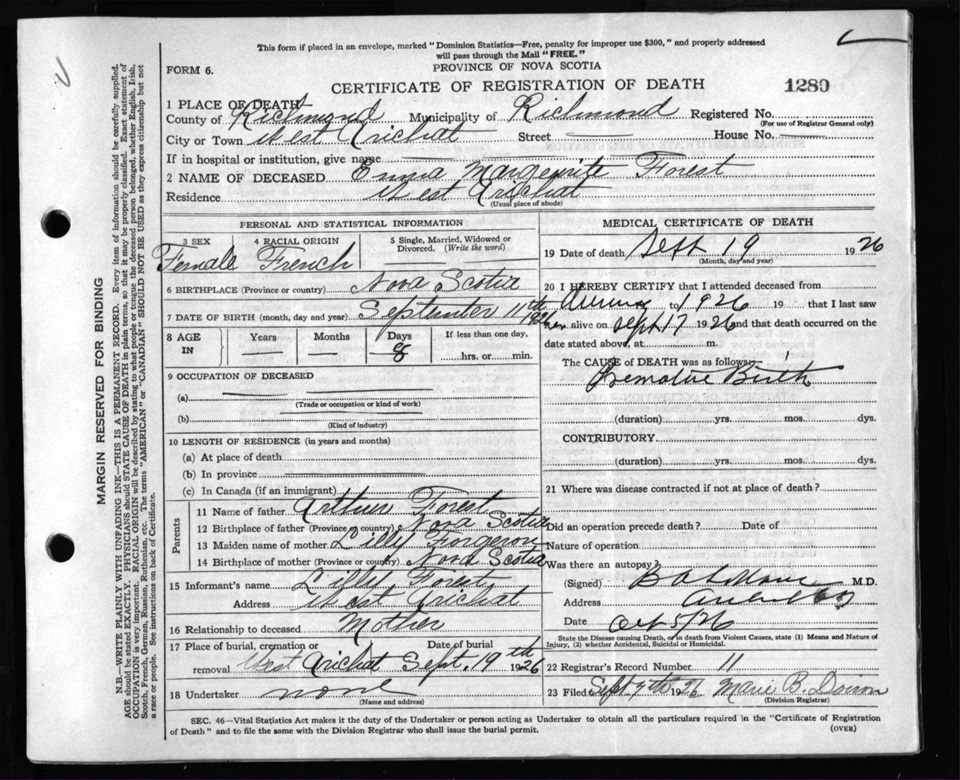 This form if placed in an envelope, marked "Dominion Statistics—Free, penalty for improper use $300," and properly addressed
will pass through the Mail "FREE."
FORM 6.
PROVINCE OF NOVA SCOTIA
CERTIFICATE OF REGISTRATION OF DEATH
1280
1 PLACE OF DEATH
County of Richmond Municipality of Richmond Registered No.
(For use of Registrar General only)
City or Town West Arichat Street House No.
If in hospital or institution, give name
2 NAME OF DECEASED Emma Marguerite Forest
Residence West Arichat
(Usual place of abode)
PERSONAL AND STATISTICAL INFORMATION
3 SEX 4 RACIAL ORIGIN 5 Single, Married, Widowed or Divorced. (Write the word)
Female French
6 BIRTHPLACE (Province or country) Nova Scotia
7 DATE OF BIRTH (month, day and year) September 11th 1926
8 AGE IN Years Months Days If less than one day,
8 hrs. or min.
9 OCCUPATION OF DECEASED
(a)
(Trade or occupation or kind of work)
(b)
(Kind of industry)
10 LENGTH OF RESIDENCE (in years and months)
(a) At place of death
(b) In province
(c) In Canada (if an immigrant)
Parents
11 Name of father Arthur Forest
12 Birthplace of father (Province or country) Nova Scotia
13 Maiden name of mother Lilly Forgeron
14 Birthplace of mother (Province or country) Nova Scotia
15 Informant's name Lilly Forest
Address West Arichat
16 Relationship to deceased Mother
17 Place of burial, cremation or removal Date of burial
West Arichat Sept. 19th 1926
18 Undertaker none
(Name and address)
MEDICAL CERTIFICATE OF DEATH
19 Date of death Sept 19 1926
(Month, day and year)
20 I HEREBY CERTIFY that I attended deceased from
to 1926 19 that I last saw
her alive on Sept 17 1926 and that death occurred on the
date stated above, at m.
The CAUSE of DEATH was as follows:
Premature Birth
(duration) yrs. mos. dys.
CONTRIBUTORY
(duration) yrs. mos. dys.
21 Where was disease contracted if not at place of death?
Did an operation precede death? Date of
Nature of operation
Was there an autopsy?
(Signed) M.D.
Address
Date Oct 5/26
State the Disease causing Death, or in death from Violent Causes, state (1) Means and Nature of
Injury, (2) whether Accidental, Suicidal or Homicidal.
22 Registrar's Record Number 11
23 Filed Sept 1926 Marie B.
(Division Registrar)
SEC. 46—Vital Statistics Act makes it the duty of the Undertaker or person acting as Undertaker to obtain all the particulars required in the "Certificate of Registration
of Death" and to file the same with the Division Registrar who shall issue the burial permit.
(OVER)
MARGIN RESERVED FOR BINDING
N.B.—WRITE PLAINLY WITH UNFADING INK—THIS IS A PERMANENT RECORD. Every item of information should be carefully supplied.
AGE should be stated EXACTLY. PHYSICIANS should STATE CAUSE OF DEATH in plain terms, so that it may be properly classified. Exact statement of
OCCUPATION is very important. RACIAL ORIGIN will be described by stating to what people or tongue the deceased person belonged, whether English, Irish,
Scotch, French, German, Russian, Ruthenian, etc. The terms "AMERICAN" or "CANADIAN" SHOULD NOT BE USED as they express citizenship but not
a race or people. See instructions on back of Certificate.